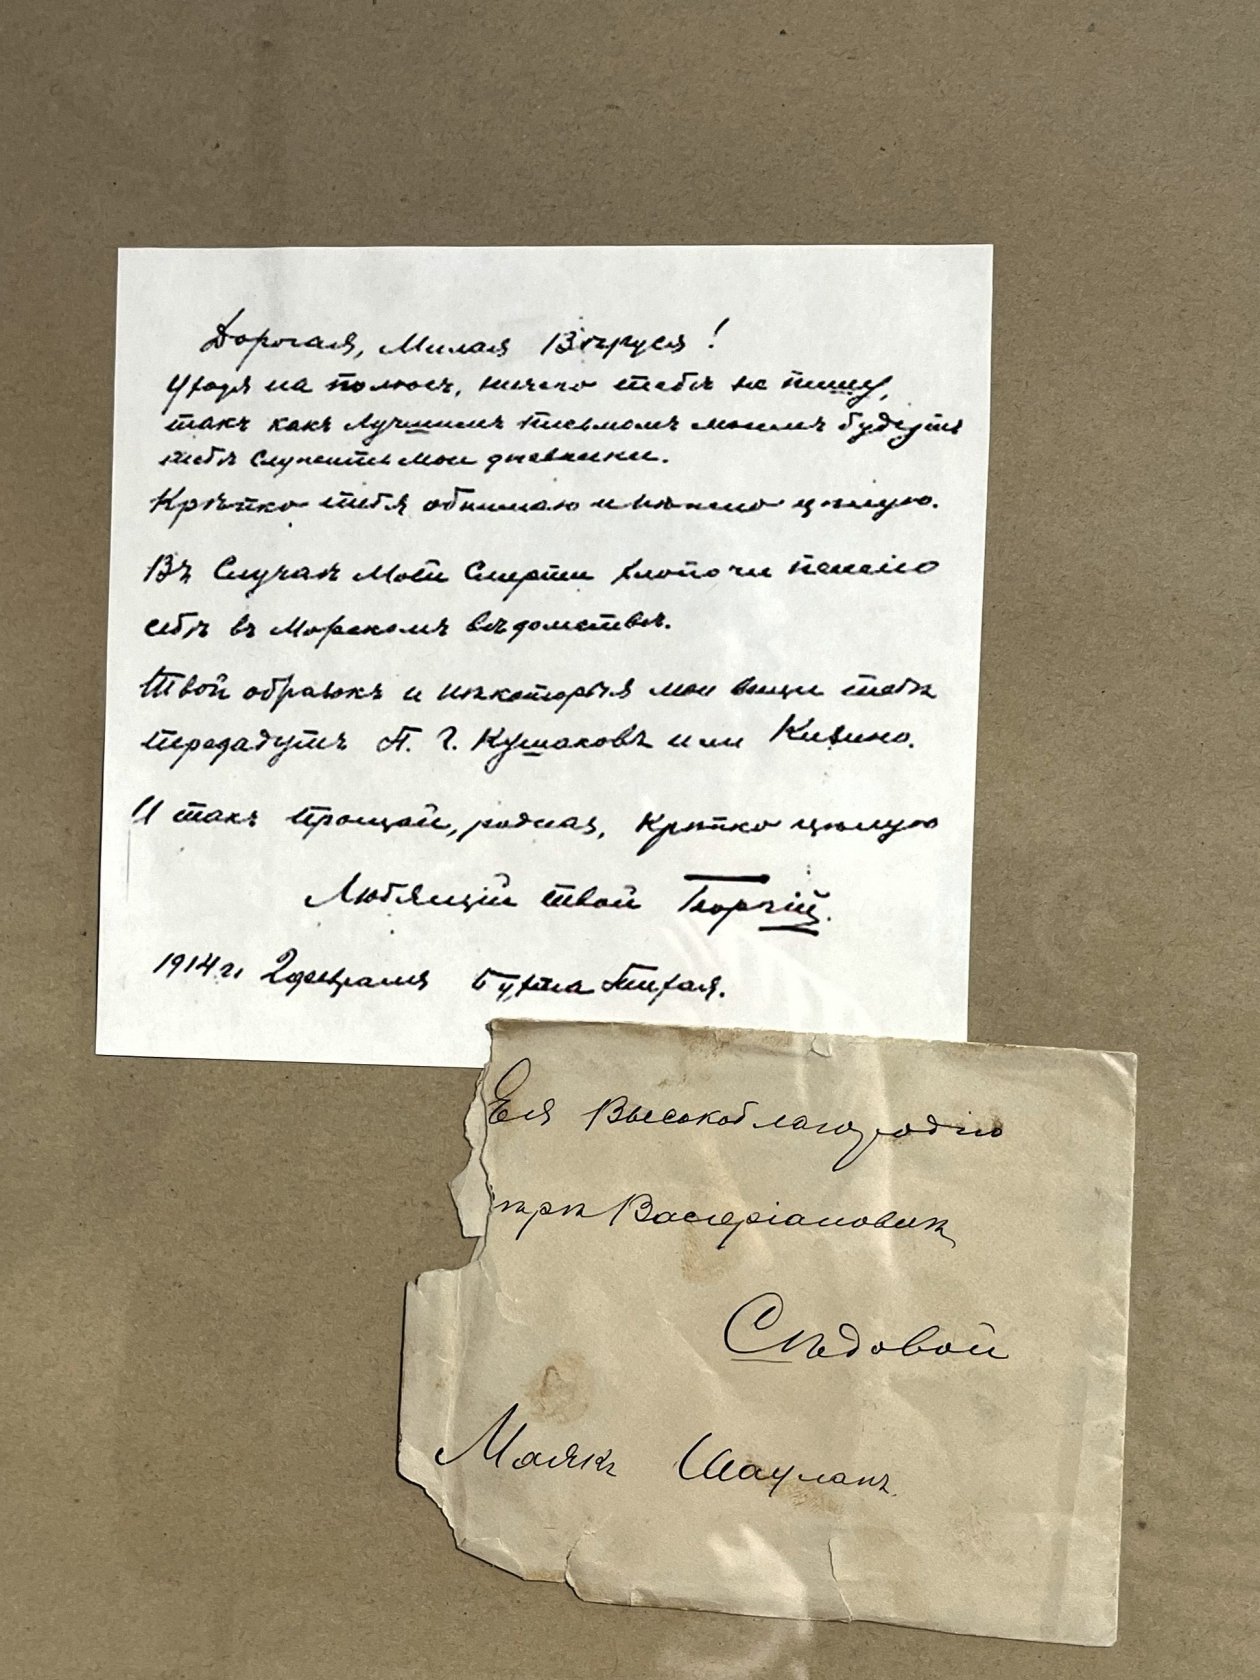 Дорогая, Милая Вѣруся!
Уходя на полюсъ, ничего тебѣ не пишу,
такъ какъ лучшимъ письмомъ моимъ будутъ
тебѣ служить мои дневники.
Крѣпко тебя обнимаю и нѣжно цѣлую.
Въ Случаѣ Моей Смерти хлопочи пенсію
себѣ въ Морскомъ вѣдомствѣ.
Твой образокъ и нѣкоторыя мои вещи тебѣ
передадутъ П. Г. Кушаковъ или Кизино.
И такъ прощай, родная, Крѣпко цѣлую
Любящій твой Георгій.
1914 г. 2 февраля Бухта Тихая.
Ея Высокоблагородію
ѣрѣ Валеріановнѣ
Сѣдовой
Маякъ